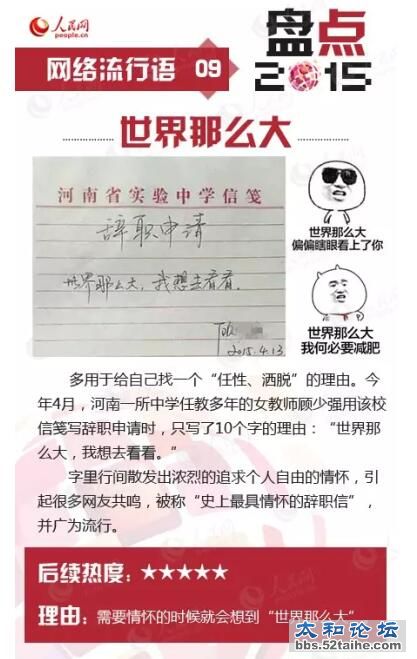 人民网
people.cn
网络流行语 09
盘点
2015
世界那么大
河南省实验中学信笺
辞职申请
世界那么大，我想去看看。
2015.4.13
世界那么大
偏偏瞎眼看上了你
世界那么大
我何必要减肥
多用于给自己找一个“任性、洒脱”的理由。今
年4月，河南一所中学任教多年的女教师顾少强用该校
信笺写辞职申请时，只写了10个字的理由：“世界那
么大，我想去看看。”
字里行间散发出浓烈的追求个人自由的情怀，引
起很多网友共鸣，被称“史上最具情怀的辞职信”，
并广为流行。
后续热度：★★★★★
理由：需要情怀的时候就会想到“世界那么大”
太和论坛
bbs.52taihe.com